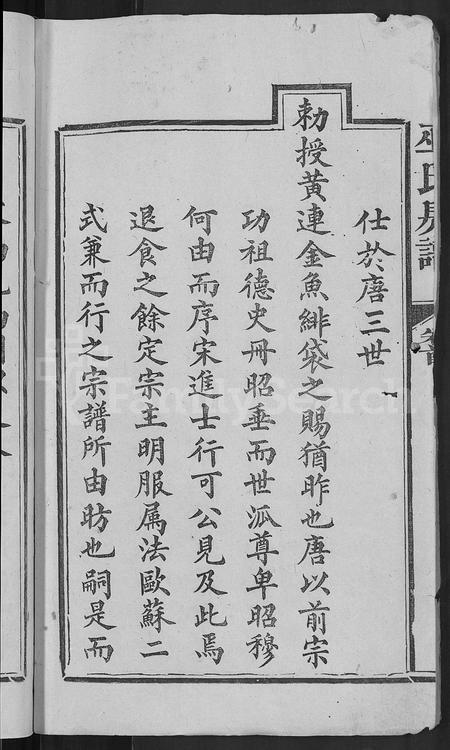 仕於唐三世
勅授黄連金魚緋袋之賜猶昨也唐以前宗
功祖德史册昭垂而世派尊卑昭穆
何由而序宋進士行可公見及此焉
退食之餘定宗主明服属法歐蘇二
式兼而行之宗譜所由昉也嗣是而
FamilySearch